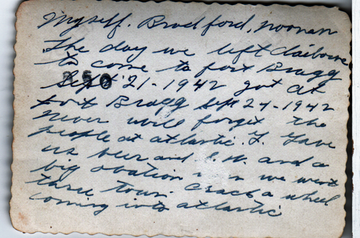 Myself. Bradford, Noonan
The day we left Claiborne
to come to fort Bragg
Sept 21-1942 got at
fort Bragg sept 24-1942
Never will forget the
people at atlantic. I. Gave
us beer and and a
big ovation we went
threw town. Crack a wheel
coming into atlantic
350